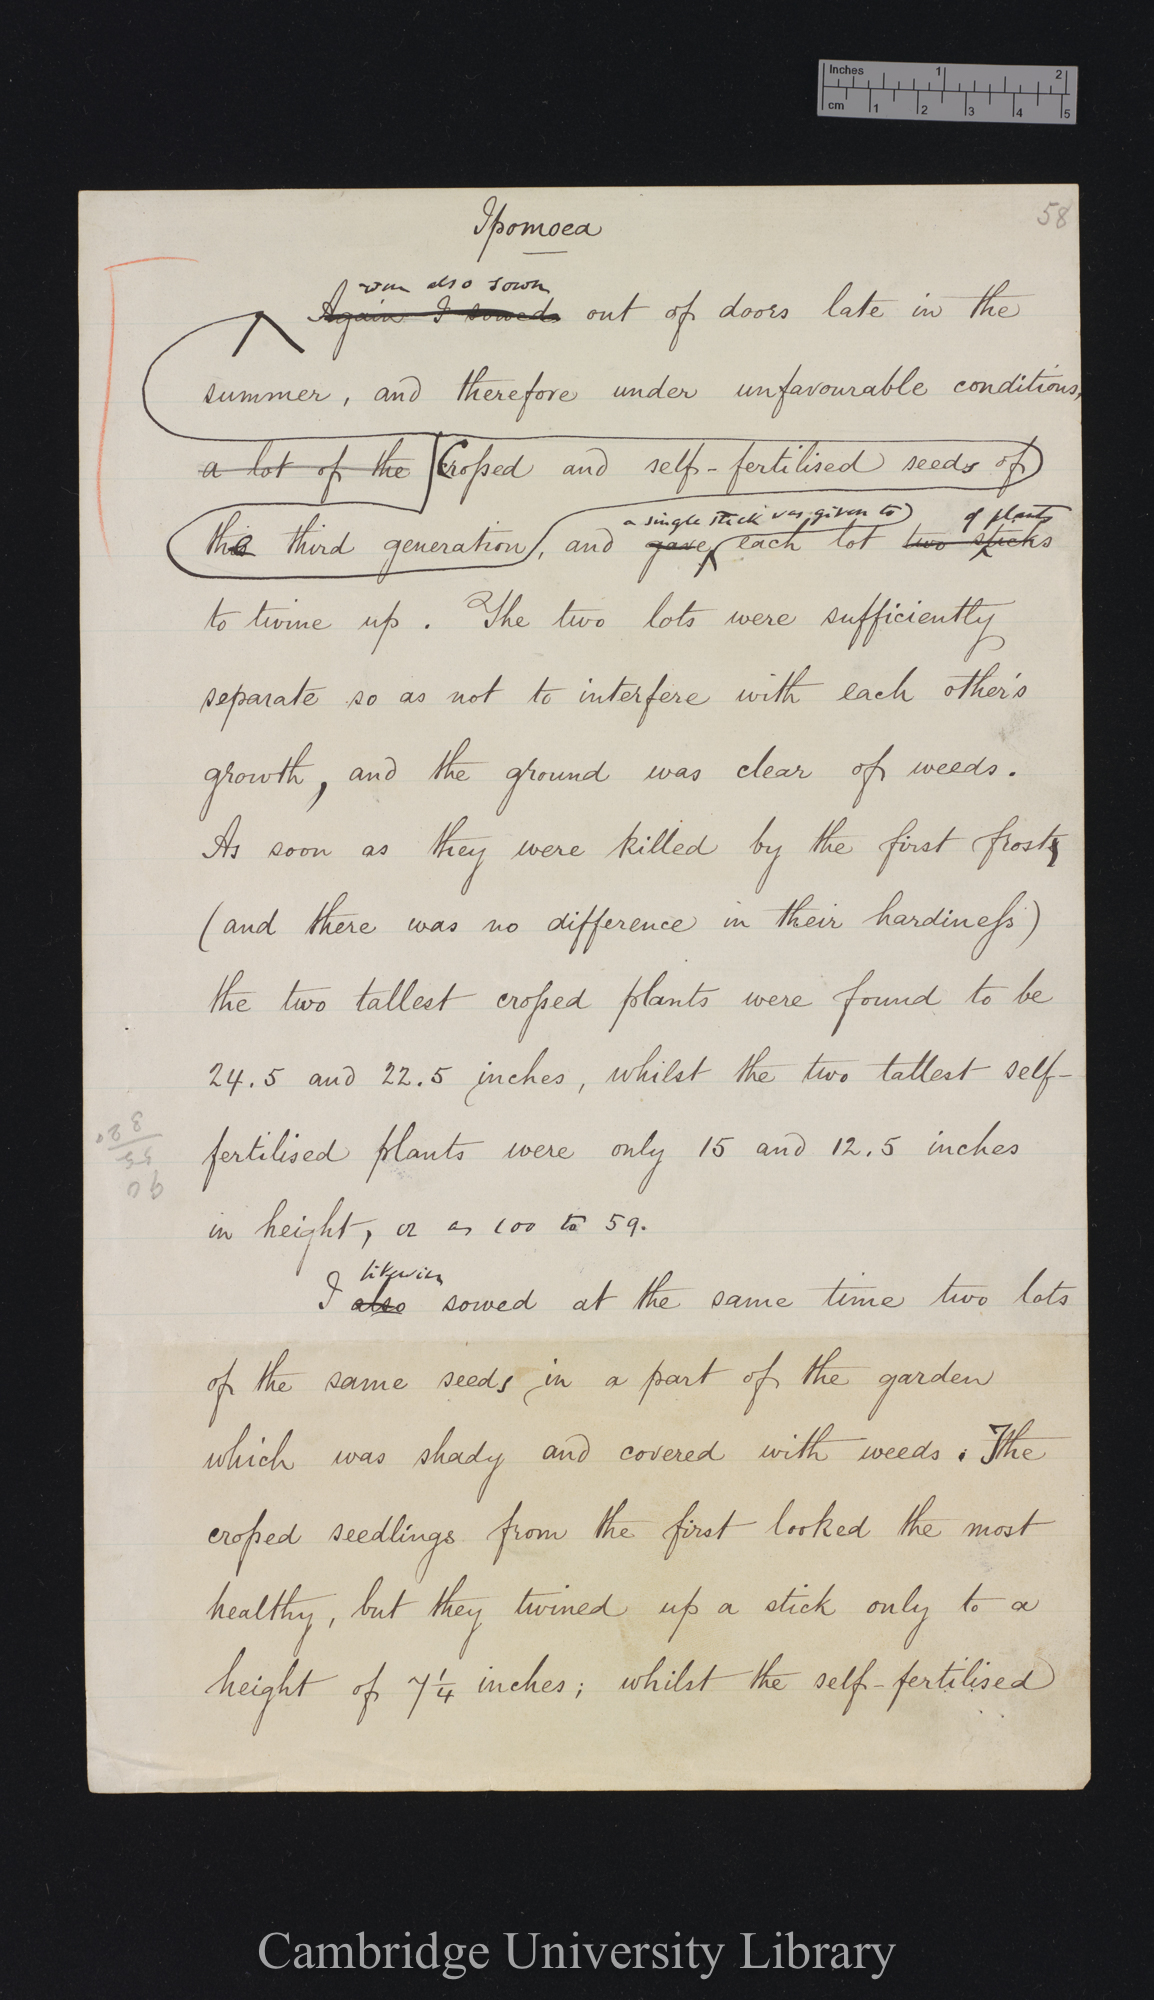 Inches 1 2
cm 1 2 3 4 5
Ipomoea
58
were also sown
Again I sowed out of doors late in the
summer, and therefore under unfavourable conditions,
a lot of the Crossed and self-fertilised seeds of
a single stick was given to of plants
the third generation, and gave each lot two sticks
to twine up. The two lots were sufficiently
separate so as not to interfere with each other's
growth, and the ground was clear of weeds.
As soon as they were killed by the first frost
(and there was no difference in their hardiness)
the two tallest crossed plants were found to be
24.5 and 22.5 inches, whilst the two tallest self-
fertilised plants were only 15 and 12.5 inches
in height, or as 100 to 59.
likewise
I also sowed at the same time two lots
of the same seeds in a part of the garden
which was shady and covered with weeds. The
crossed seedlings from the first looked the most
healthy, but they twined up a stick only to a
height of 7¼ inches; whilst the self-fertilised
Cambridge University Library